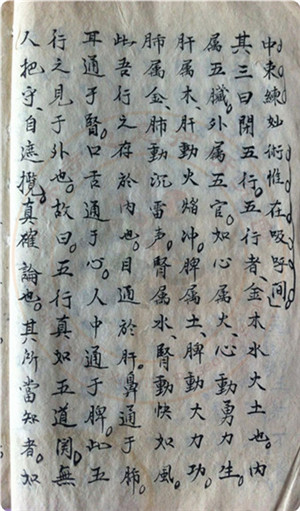 中束練妙術惟在吸呼間
其三曰閉五行五行者金木水火土也內
属五臟外属五官如心属火心動勇力生
肝属木肝動火焰冲脾属土脾動大力功
肺属金肺動沉雷声腎属水腎動快如風
此五行之存於內也目通於肝鼻通于肺
耳通于腎口舌通于心人中通于脾此五
行之見于外也故曰五行真如五道関無
人把守自遮攬真確論也其所當知者如